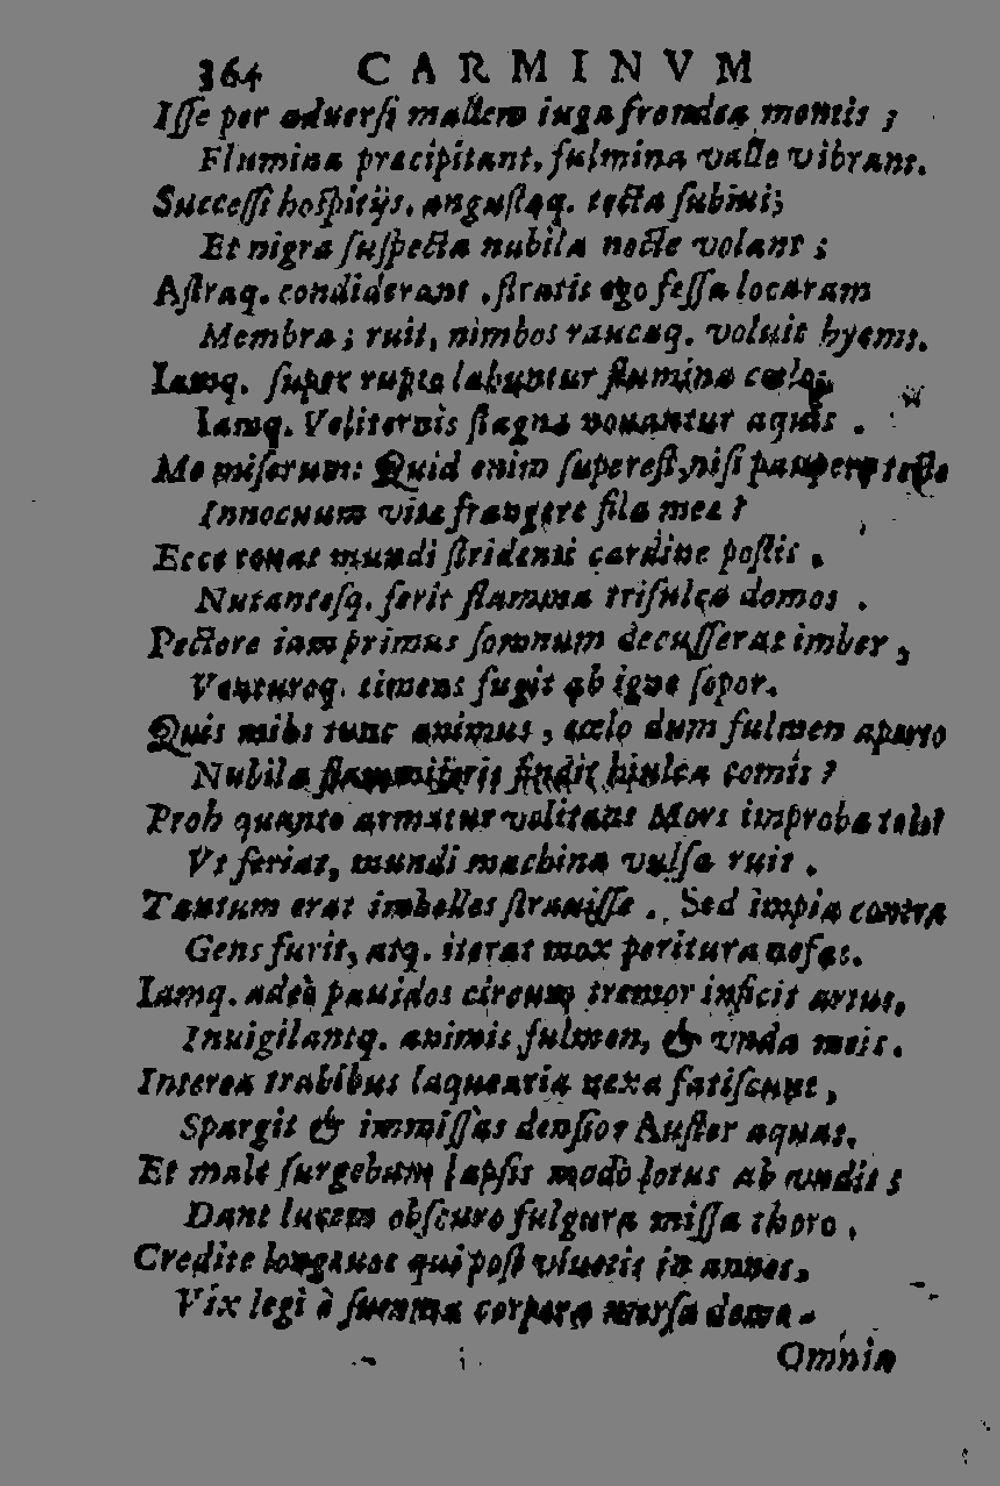 364 CARMINVM
Iſſe per aduerſi mallem iuga frondea montis ;
Flumina præcipitant, fulmina valle vibrant.
Succeſſi hoſpitijs. anguſtaq. tecta ſubiui;
Et nigra ſuſpecta nubila nocte volant ;
Aſtraq. condiderant . ſtratis ego feſſa locaram
Membra ; ruit, nimbos raucaq. voluit hyems.
Iamq. ſuper rupto labuntur flumina cœlo;
Iamq. Veliternis ſtagna nouantur aquis .
Me miſerum: Quid enim ſupereſt, niſi paupere tecto
Innocuum vitæ frangere fila meæ ?
Ecce tonat mundi ſtridentis cardine poſtis .
Nutanteſq. ferit flamma triſulca domos .
Pectore iam primus ſomnum decuſſerat imber ,
Venturoq. timens fugit ab igne ſopor.
Quis mihi tunc animus , cœlo dum fulmen aperto
Nubila flammiferis findit hiulca comis ?
Proh quanto armatur volitans Mors improba telo!
Vt feriat, mundi machina vulſa ruit .
Tantum erat imbelles ſtrauiſſe . Sed impia contra
Gens furit, atq. iterat mox peritura nefas.
Iamq. adeò pauidos circum tremor inficit artus,
Inuigilantq. animis fulmen, & vnda meis.
Interea trabibus laquearia nexa fatiſcunt ,
Spargit & immiſſas denſior Auſter aquas.
Et male ſurgebam lapſis modò lotus ab vndis ;
Dant lucem obſcuro fulgura miſſa thoro .
Credite longæuos qui poſt viuetis in annos,
Vix legi à ſumma corpora merſa domo
Omnia